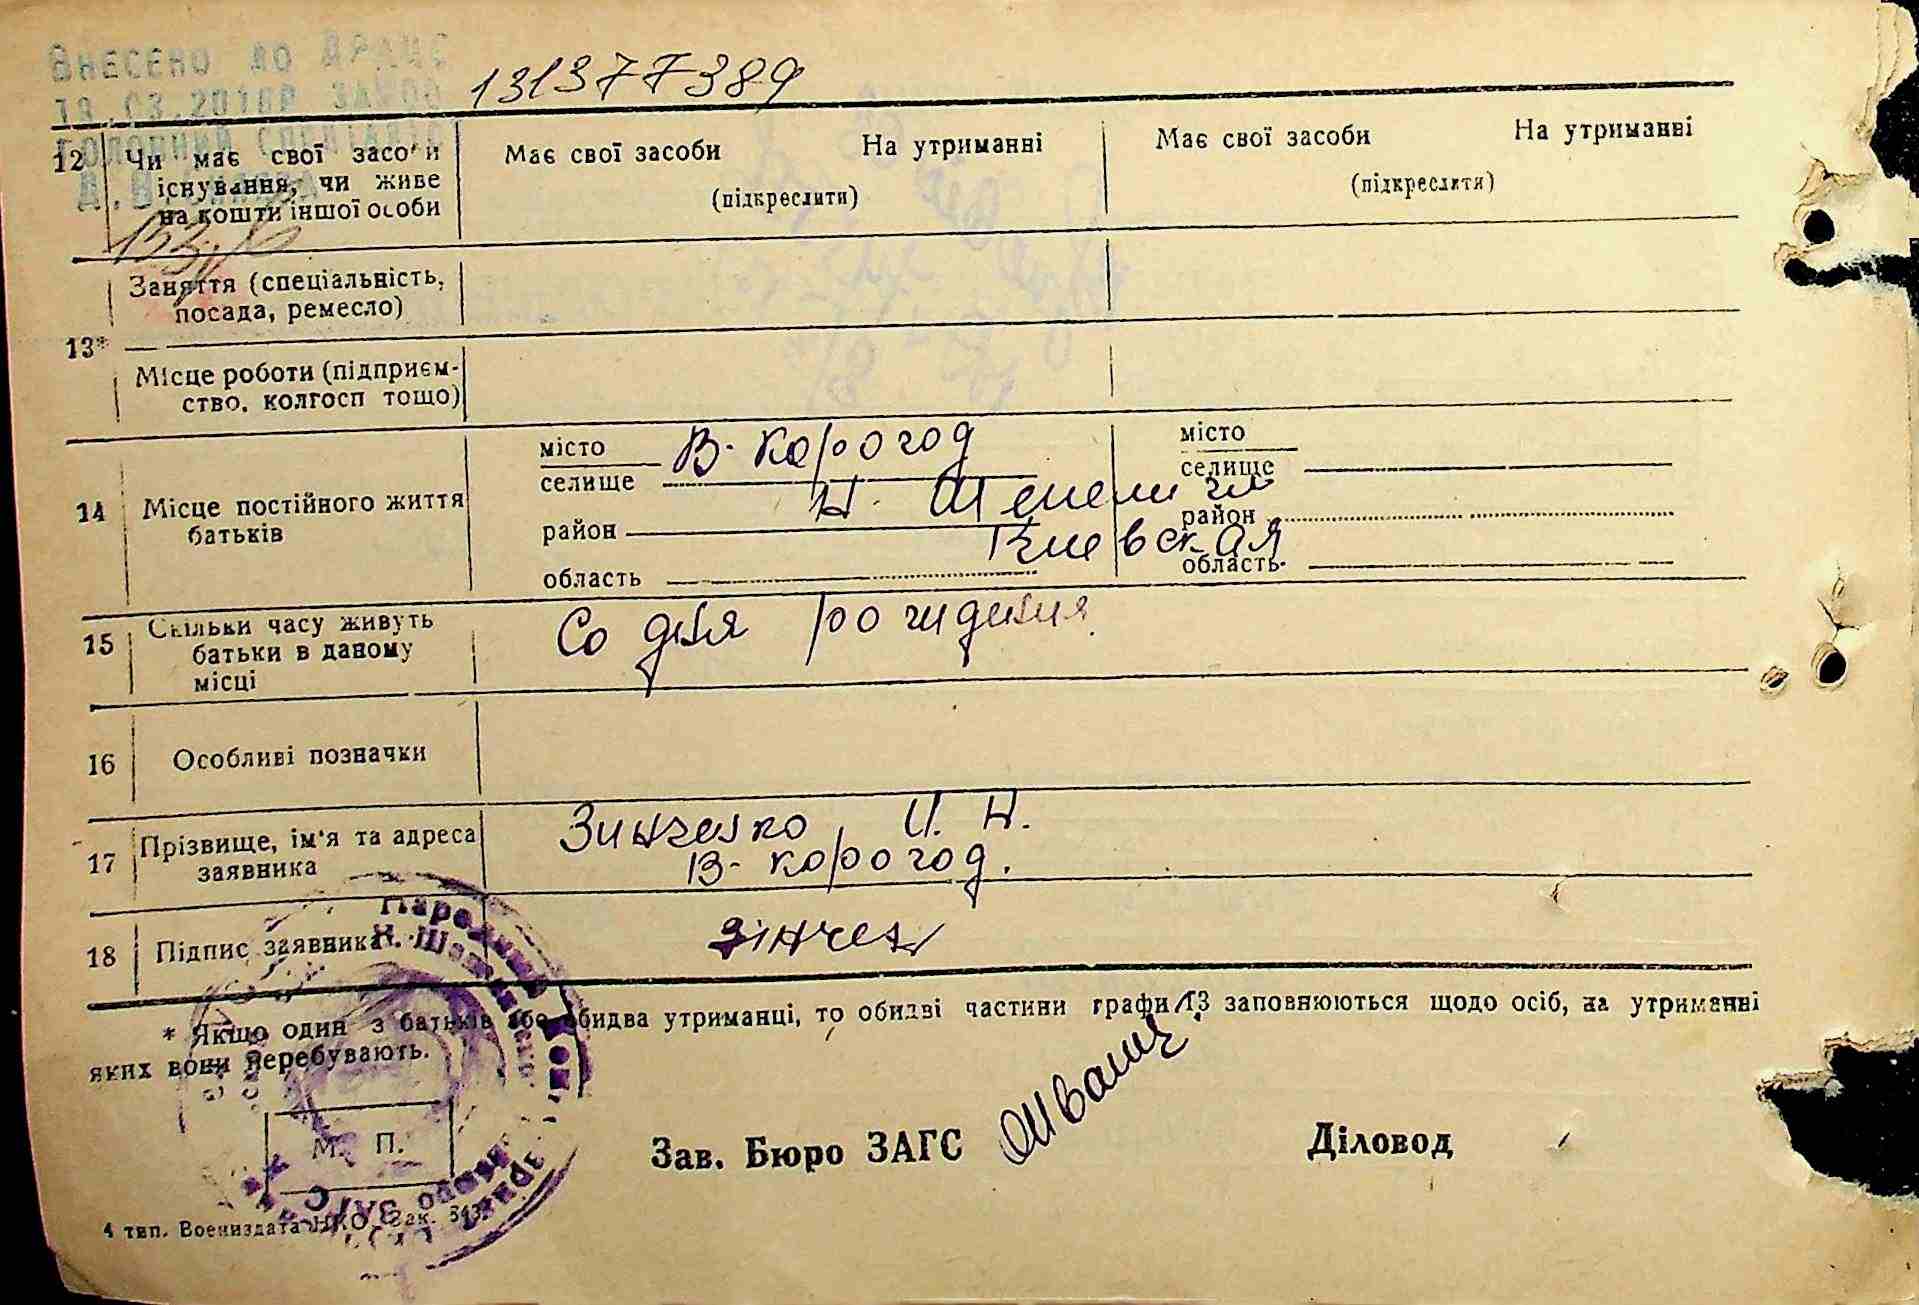 Внесено до ДРАЦС
131377389
12 Чи має свої засоби
існування, чи живе
на кошти іншої особи
Має свої засоби На утриманні
(підкреслити)
Має свої засоби На утриманні
(підкреслити)
13* Заняття (спеціальність,
посада, ремесло)
Місце роботи (підприєм-
ство, колгосп тощо)
14 Місце постійного життя
батьків
місто
селище В-Корогод
район Н. Шепеличи
область Киевская
місто
селище
район
область
15 Скільки часу живуть
батьки в даному
місці
Со дня рождения
16 Особливі позначки
17 Прізвище, ім'я та адреса
заявника
Зинченко И. Н.
В-Корогод.
18 Підпис заявника
Зінчен
* Якщо один з батьків або обидва утриманці, то обидві частини графи 13 заповнюються щодо осіб, на утриманні
яких вони перебувають.
М. П.
Зав. Бюро ЗАГС
Діловод
4 тип. Воениздата НКО. Зак. 543